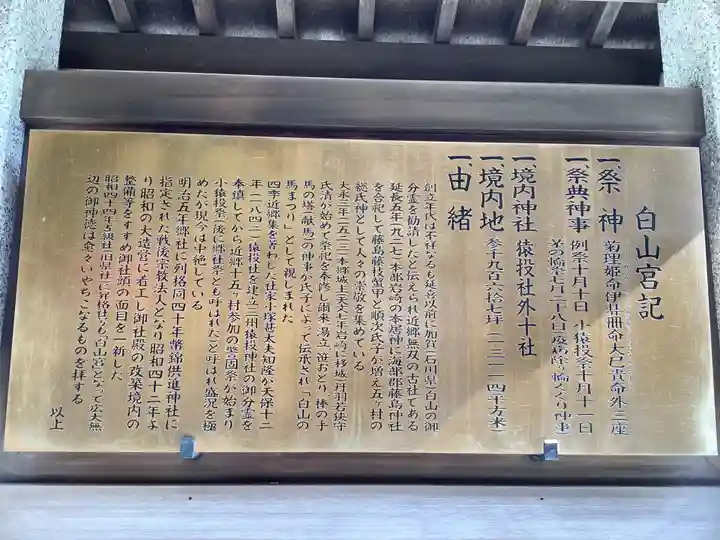 白山宮記
一、祭神 菊理姫命伊弉冊命大己貴命外三座
一、祭典神事 例祭十月十日 小猿投祭十月十一日
茅の輪祭七月二十八日疫病除り輪くぐり神事)
一、境内神社 猿投社外十社
一、境内地 参千九百六拾七坪(一三一一四平方米)
一、由緒
創立年代は不祥なるも延喜以前に加賀(石川県)白山の御
分霊を勧請したと伝えられ近郷無双の古社である
延長五年(九二七)本郡岩崎の本居神に海部郡藤島神社
を合祀して藤島藤枝蟹甲と順次氏子が増え五ヶ村の
総氏神として人々の崇敬を集めている
大永三年(一五二三)本郷城主(天文七年岩崎に移城)丹羽若狭守
氏清が始めて祭祀を奉修し爾来湯立 笹おどり 棒の手
馬の塔(献馬)の神事が氏子によって伝承され「白山の
馬まつり」として親しまれた
四季近郷集を著わした社家小塚甚太夫知隆が天保十二
年(一八四二)猿投社を建立三州猿投神社の御分霊を
奉鎮してから近郷十五ヶ村参加の警固祭が始まり
小猿投祭(後に郷社祭とも呼ばれた)と呼ばれ盛況を極
めたが現今は中絶している
明治五年郷社に列格同四十年幣錦供進神社に
指定された戦後宗教法人となり昭和四十二年よ
り昭和の大造営に着工し御社殿の改築境内の
整備等をすすめ御社頭の面目を一新した
昭和四十四年五級社(旧県社)に昇格せらる白山宮となって広大無
辺の御神徳は愈々いやちこなるものを拝する
以上